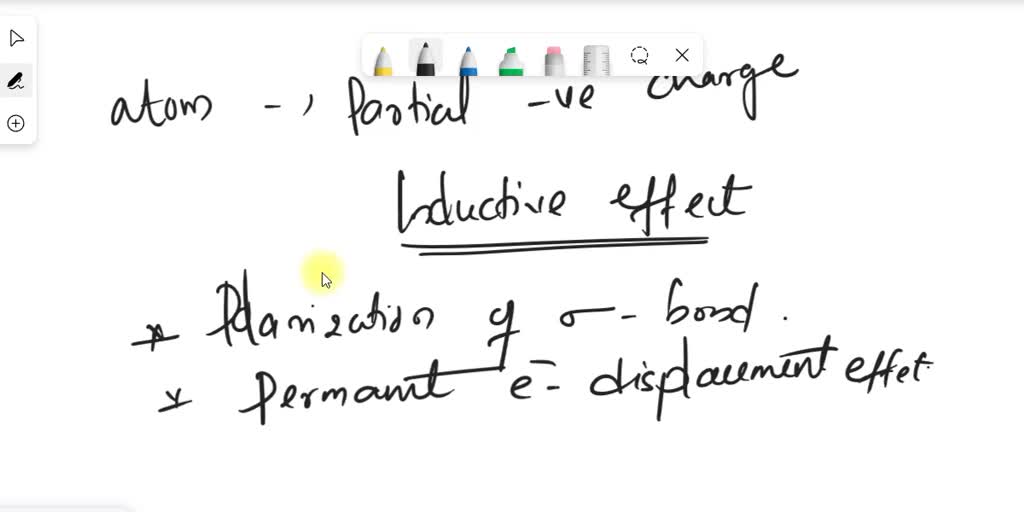 atom -, Partial -ve charge
Inductive effect
* Polarization of σ- bond.
* Permant e- displacement effet